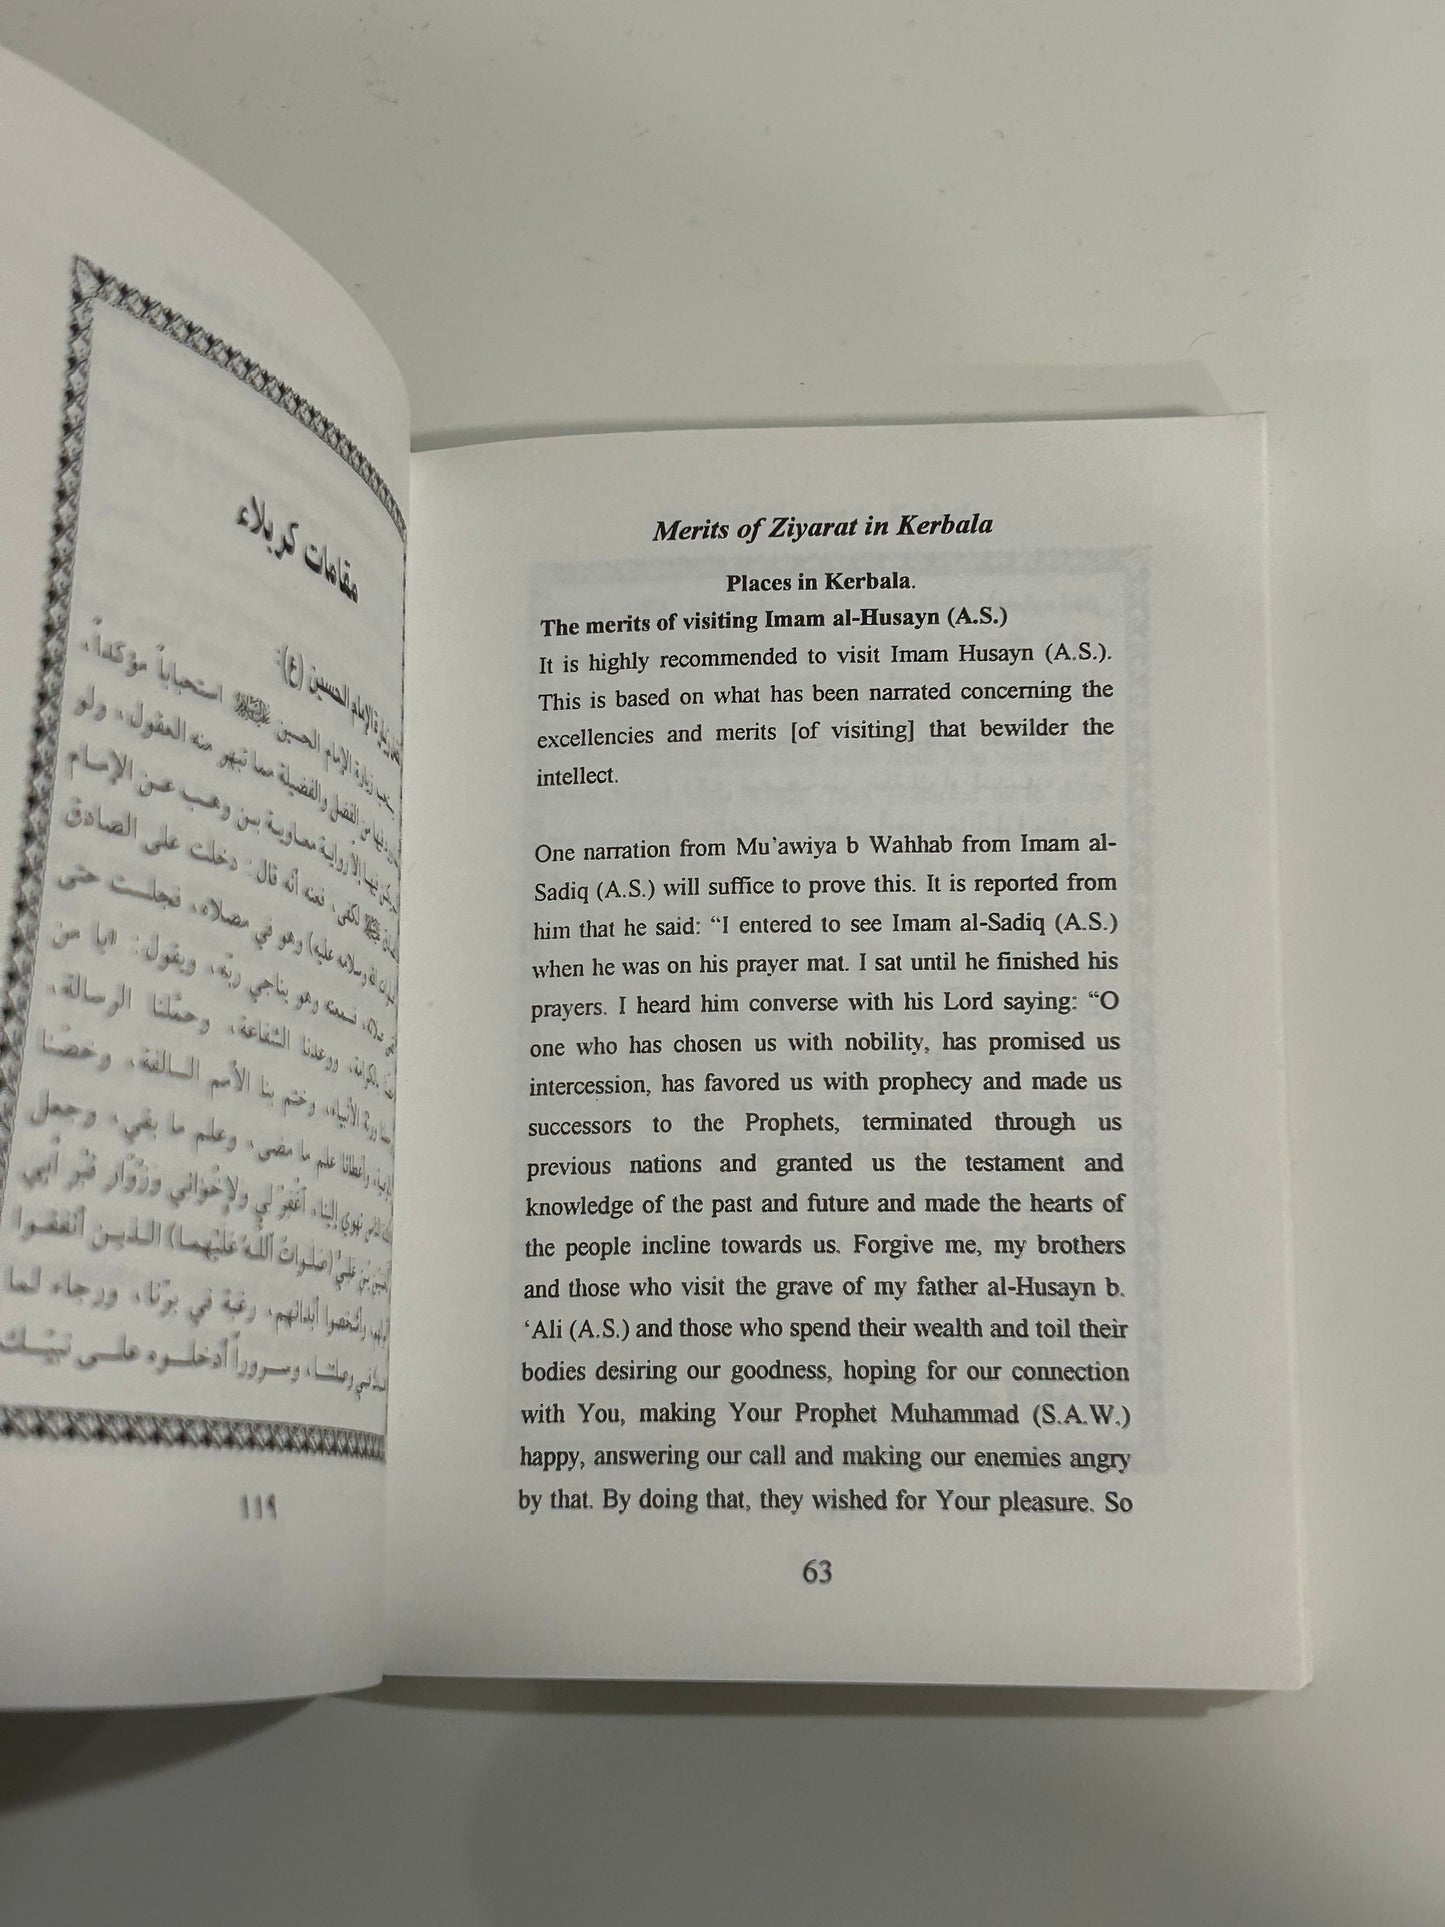 مقامات كربلاء
زيارة الإمام الحسين (ع):
زيارة الإمام الحسين استحباباً مؤكداً،
من الفضل والفضيلة مما تبهر منه العقول، ولو
إلا رواية معاوية بن وهب عن الإمام
لكفى، فعنه أنه قال: دخلت على الصادق
وسلامه عليه) وهو في مصلاه، فجلست حتى
صلاته، فسمعته وهو يناجي ربّه، ويقول: «يا من
بالكرامة، ووعدنا الشفاعة، وحمّلنا الرسالة،
ورثة الأنبياء، وختم بنا الأمم السالفة، وخصّنا
وأعطانا علم ما مضى، وعلم ما بقي، وجعل
تهوي إلينا، أغفر لي ولإخواني وزوّار قبر أبي
بن علي (صلوات الله عليهما) الذين أنفقوا
وأشخصوا أبدانهم، رغبة في برّنا، ورجاء لما
وسروراً أدخلوه على نبيّك
١١٩
Merits of Ziyarat in Kerbala
Places in Kerbala.
The merits of visiting Imam al-Husayn (A.S.)
It is highly recommended to visit Imam Husayn (A.S.).
This is based on what has been narrated concerning the
excellencies and merits [of visiting] that bewilder the
intellect.
One narration from Mu’awiya b Wahhab from Imam al-
Sadiq (A.S.) will suffice to prove this. It is reported from
him that he said: “I entered to see Imam al-Sadiq (A.S.)
when he was on his prayer mat. I sat until he finished his
prayers. I heard him converse with his Lord saying: “O
one who has chosen us with nobility, has promised us
intercession, has favored us with prophecy and made us
successors to the Prophets, terminated through us
previous nations and granted us the testament and
knowledge of the past and future and made the hearts of
the people incline towards us. Forgive me, my brothers
and those who visit the grave of my father al-Husayn b.
‘Ali (A.S.) and those who spend their wealth and toil their
bodies desiring our goodness, hoping for our connection
with You, making Your Prophet Muhammad (S.A.W.)
happy, answering our call and making our enemies angry
by that. By doing that, they wished for Your pleasure. So
63